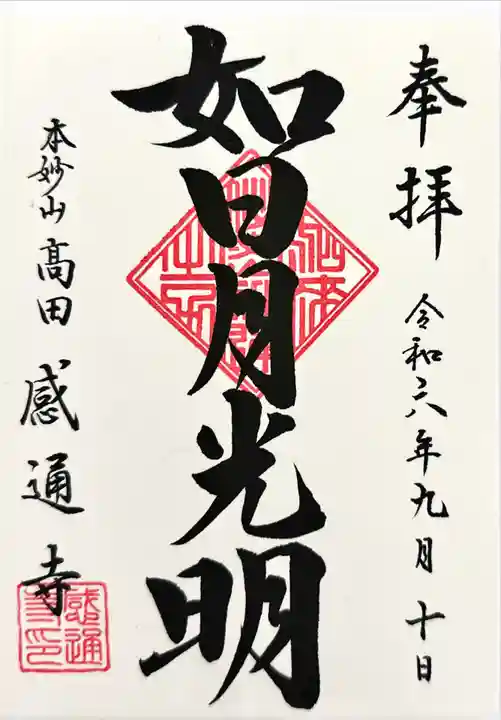 奉拝
令和六年九月十日
如日月光明
本妙山高田感通寺
感通寺印